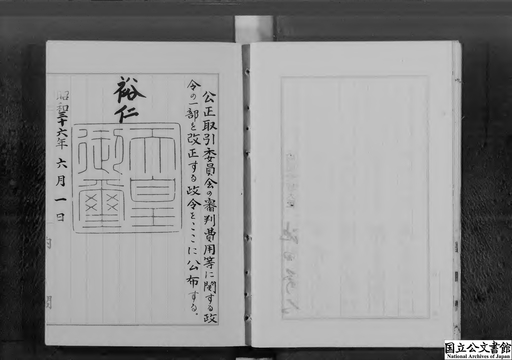 公正取引委員会の審判費用等に関する政
令の一部を改正する政令をここに公布する。
裕仁
天皇
御璽
昭和三十六年六月一日
内閣
国立公文書館
National Archives of Japan